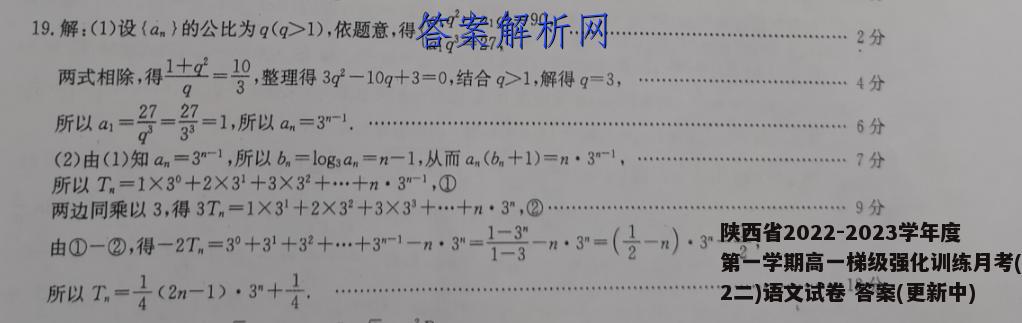 19.解:(1)设{aₙ}的公比为q(q>1),依题意,得 …… 2分
答案解析网
两式相除,得(1+q²)/q=10/3,整理得 3q²-10q+3=0,结合 q>1,解得 q=3, …… 4分
所以 a₁=27/q³=27/3³=1,所以 aₙ=3ⁿ⁻¹. …… 6分
(2)由(1)知 aₙ=3ⁿ⁻¹,所以 bₙ=log₃aₙ=n-1,从而 aₙ(bₙ+1)=n·3ⁿ⁻¹, …… 7分
所以 Tₙ=1×3⁰+2×3¹+3×3²+…+n·3ⁿ⁻¹,①
两边同乘以 3,得 3Tₙ=1×3¹+2×3²+3×3³+…+n·3ⁿ,② …… 9分
由①-②,得-2Tₙ=3⁰+3¹+3²+…+3ⁿ⁻¹-n·3ⁿ=(1-3ⁿ)/(1-3)-n·3ⁿ=(1/2-n)·3ⁿ
所以 Tₙ=1/4(2n-1)·3ⁿ+1/4. ……
陕西省2022-2023学年度
第一学期高一梯级强化训练月考(
2二)语文试卷 答案(更新中)